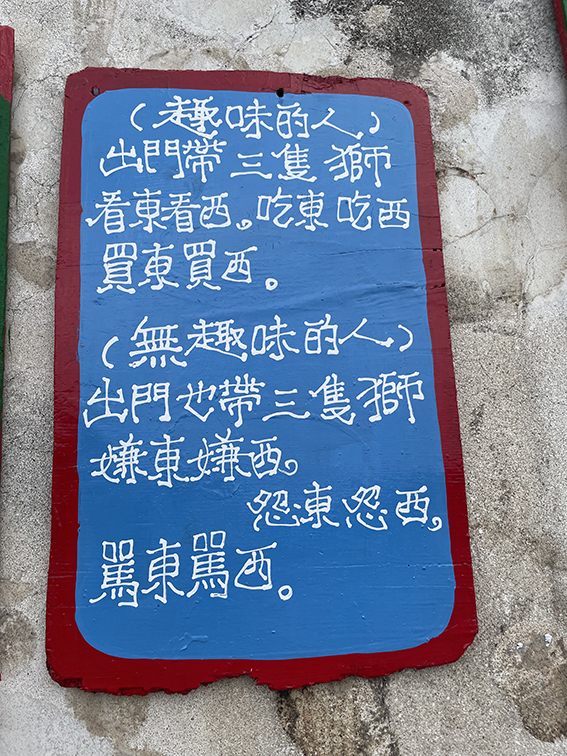 （趣味的人）
出門帶三隻獅
看東看西。吃東吃西
買東買西。
（無趣味的人）
出門也帶三隻獅
嫌東嫌西。
怨東怨西。
罵東罵西。